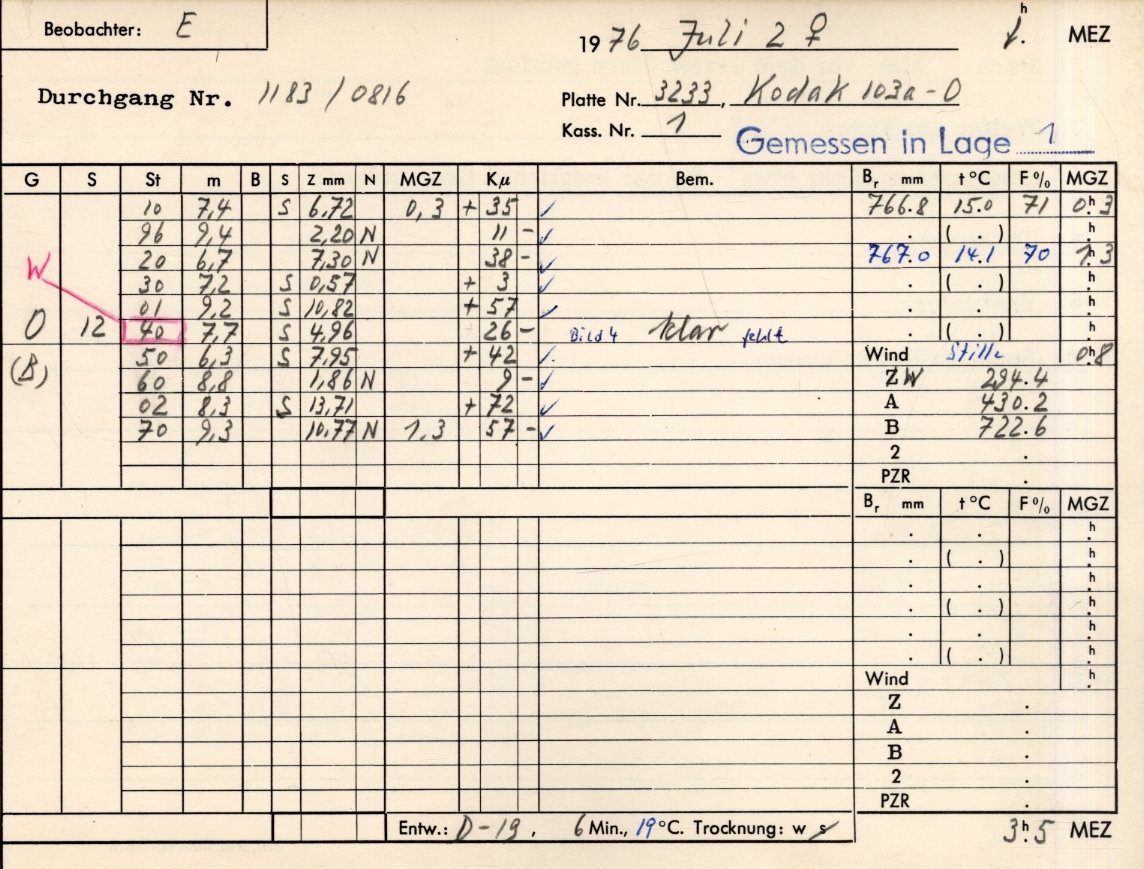 Beobachter: E
1976 Juli 2 ♀ h. MEZ
Durchgang Nr. 1183 / 0816
Platte Nr. 3233, Kodak 103a-O
Kass. Nr. 1
Gemessen in Lage 1
G S St m B S Z mm N MGZ Kμ Bem. Br mm t °C F% MGZ
10 7,4 S 6,72 0,3 + 35 ✓ 766.8 15.0 71 0h.3
96 9,4 2,20 N 11 - ✓ . ( . ) h.
20 6,7 7,30 N 38 - ✓ 767.0 14.1 70 1h.3
30 7,2 S 0,57 + 3 ✓ . ( . ) h.
W 01 9,2 S 10,82 + 57 ✓ . . h.
O 12 40 7,7 S 4,96 26 - Bild 4 klar fehlt . ( . ) h.
(B) 50 6,3 S 7,95 + 42 ✓ Wind Stille 0h.8
60 8,8 1,86 N 9 - ✓ Z W 294.4
02 8,3 S 13,71 + 72 ✓ A 430.2
70 9,3 10,77 N 1,3 57 - ✓ B 722.6
2 .
PZR .
Br mm t °C F% MGZ
. . h.
. ( . ) h.
. . h.
. ( . ) h.
. . h.
. ( . ) h.
Wind h.
Z .
A .
B .
2 .
PZR .
Entw.: D-19, 6 Min., 19 °C. Trocknung: w s
3h.5 MEZ